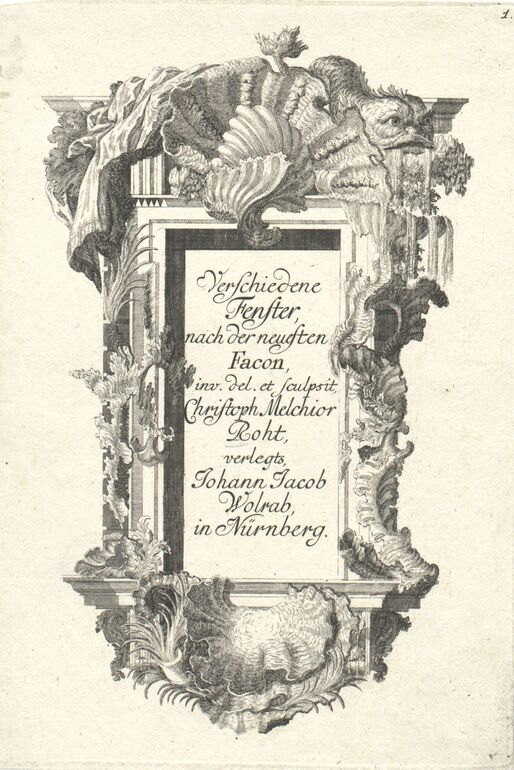 1.
Verschiedene
Fenster,
nach der neuesten
Facon,
inv. del. et sculpsit,
Christoph Melchior
Roht,
verlegts,
Johann Jacob
Wolrab,
in Nürnberg.